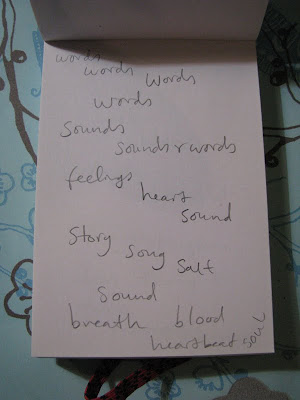 words
words words
words
Sounds
Sounds r words
feelings
heart
Sound
Story
Song
Salt
Sound
breath blood
heartbeat soul